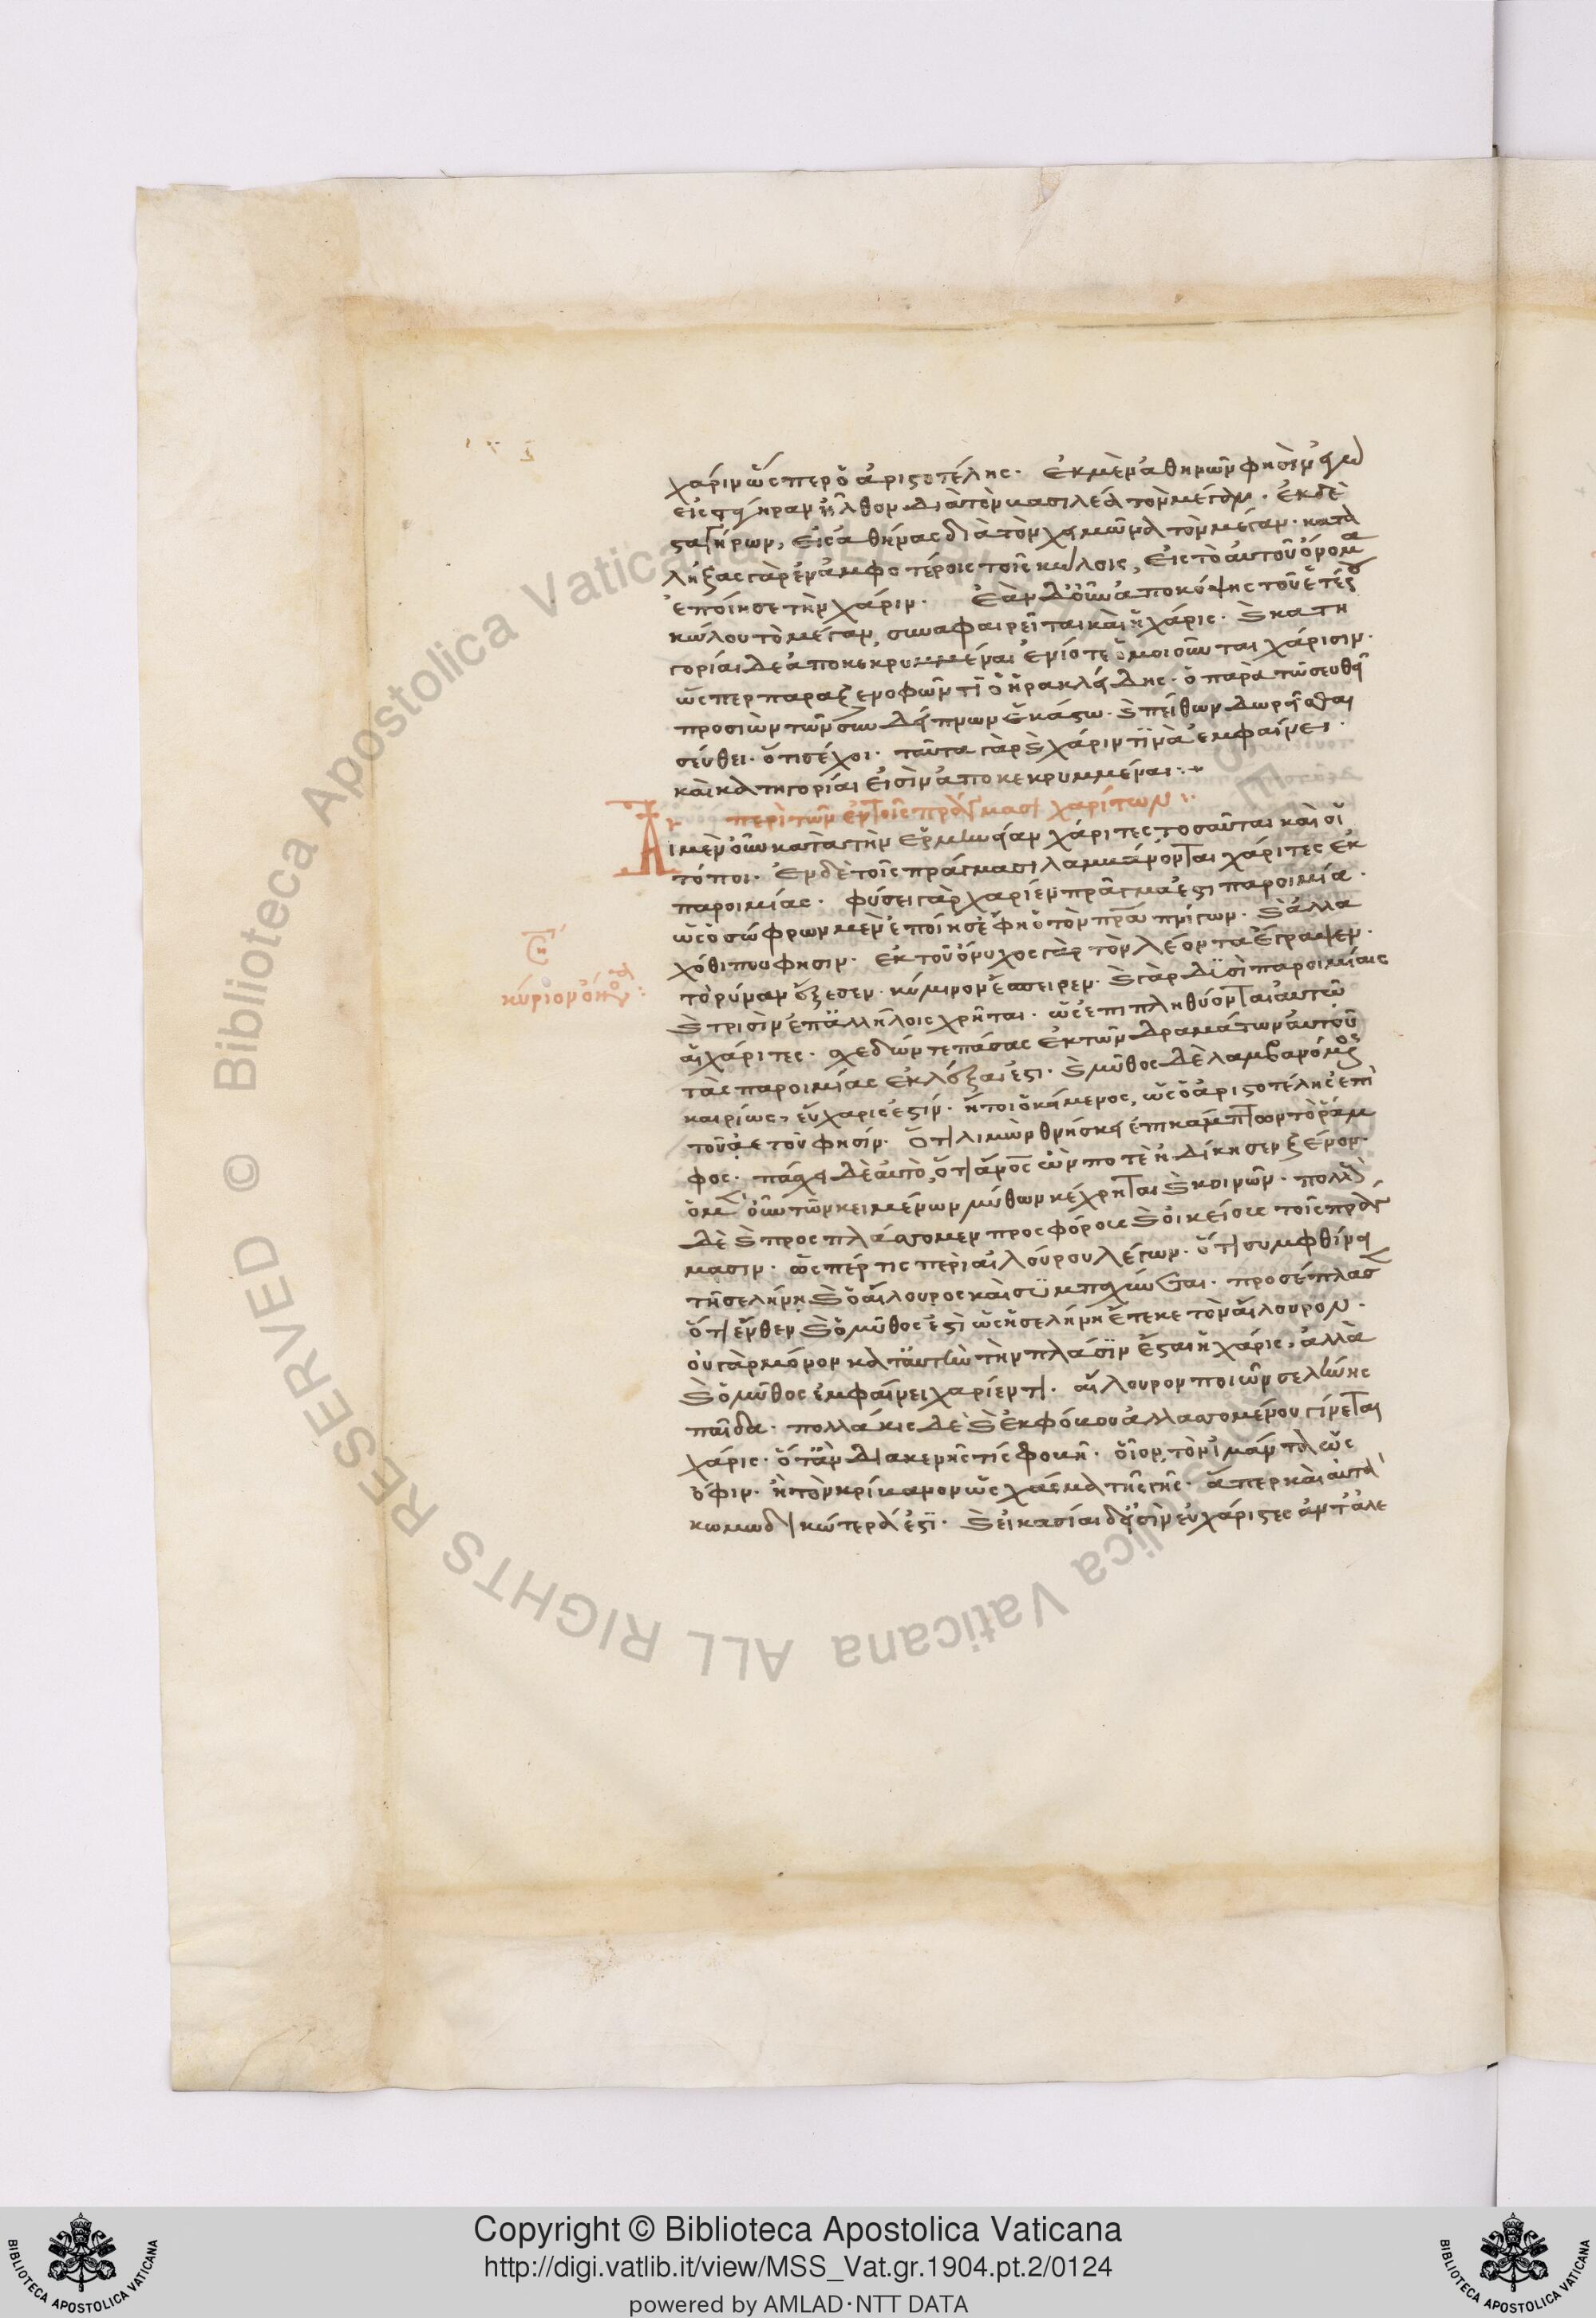 χάριν ὥσπερ ὁ ἀριστοτέλης. ἐκ μὲν ἀθηνῶν φησὶν ἐγὼ
εἰς στάγειρα ἦλθον διὰ τὸν βασιλέα τὸν μέγαν. ἐκ δὲ
σταγήρων, εἰς ἀθήνας διὰ τὸν χειμῶνα τὸν μέγαν. κατα
λήξας γὰρ ἐν ἀμφοτέροις τοῖς κώλοις, εἰς τὸ αὐτοῦ ὄνομα
ἐποίησε τὴν χάριν. ἐὰν δ' οὖν ἀποκόψης τοῦ ἑτέρου
κώλου τὸ μέγαν, συναφαιρεῖται καὶ ἡ χάρις. καὶ κατη
γορίαι δὲ ἀποκεκρυμμέναι ἐνίοτε ὁμοιοῦνται χάρισιν.
ὥσπερ παρὰ ξενοφῶντι ὁ ἡρακλείδης. ὁ παρὰ τῶ σευθεῖ
προσιὼν τῶν συνδείπνων ἑκάστω. καὶ πείθων δωρεῖσθαι
σεύθει. ὅτι ἔχοι. ταῦτα γὰρ καὶ χάριν τινὰ ἐμφαίνει.
καὶ κατηγορίαι εἰσὶν ἀποκεκρυμμέναι:
περὶ τῶν ἐν τοῖς πράγμασι χαρίτων:
Αἱ μὲν οὖν κατὰ τὴν ἑρμηνείαν χάριτες τοσαῦται καὶ οἱ
τόποι. ἐν δὲ τοῖς πράγμασι λαμβάνονται χάριτες ἐκ
παροιμίας. φύσει γὰρ χαρίεν πρᾶγμα ἐστι παροιμία.
ὡς ὁ σώφρων μὲν ἐποίησε ἔφη ὁ τὸν πρᾶν πνίγων. καὶ ἄλλα
χόθι που φησιν. ἐκ τοῦ ὄνυχος γὰρ τὸν λέοντα ἔγραψεν.
τορύναν ἔξεσεν. κύμινον ἔσπειρεν. καὶ γὰρ δυσὶ παροιμίαις
καὶ τρισὶν ἐπάλλήλοις χρῆται. ὡς ἐπιπληθύονται αὐτῶ
αἱ χάριτες. σχεδόν τε πάσας ἐκ τῶν δραμάτων αὐτοῦ
τὰς παροιμίας ἐκλέξαι ἐστι. καὶ μῦθος δὲ λαμβανόμενος
καιρίως, εὔχαρις ἐστίν. ἤτοι ὁ κείμενος, ὡς ὁ ἀριστοτέλης ἐπὶ
τοῦ ἀετοῦ φησίν. ὅτι λιμῶ θνήσκει ἐπικάμπτων τὸ ῥάμ
φος. πάσχει δὲ αὐτὸ, ὅτι ἄνθρωπος ὤν ποτε ἠδίκησεν ξένον.
ὁ μὲν οὖν τῶν κειμένων μύθων κέχρηται καὶ κοινῶν. πολλοὺς
δὲ καὶ προσπλάσσομεν προσφόρους καὶ οἰκείους τοῖς πράγ
μασιν. ὥσπέρ τις περὶ αἰλούρου λέγων. ὅτι συμφθίνει
τῆ σελήνη καὶ ὁ αἴλουρος καὶ συμπαχύνεται. προσέπλασεν
ὅτι ἔνθεν καὶ ὁ μῦθος ἐστὶ ὡς ἡ σελήνη ἔτεκε τὸν αἴλουρον.
οὐ γὰρ μόνον κατ' αὐτὴν τὴν πλάσιν ἔσται ἡ χάρις, ἀλλὰ
καὶ ὁ μῦθος ἐμφαίνει χαρίεν τι. αἴλουρον ποιῶν σελήνης
παῖδα. πολλάκις δὲ καὶ ἐκ φόβου ἀλλασσομένου γίνεται
χάρις. ὅταν διακενῆς τὶς φοβηθῇ. οἷον, τὸν ἱμάντα ὡς
ὄφιν. ἢ τὸν κρίβανον ὡς χάσμα τῆς γῆς. ἅπερ καὶ αὐτὰ
κωμωδικώτερά ἐστι. καὶ εἰκασίαι δ' εἰσὶν εὐχάριστες ἂν τ' ἀλε
κύριον
Copyright © Biblioteca Apostolica Vaticana
http://digi.vatlib.it/view/MSS_Vat.gr.1904.pt.2/0124
powered by AMLAD·NTT DATA
BIBLIOTECA APOSTOLICA VATICANA
BIBLIOTECA APOSTOLICA VATICANA
© Biblioteca Apostolica Vaticana ALL RIGHTS RESERVED